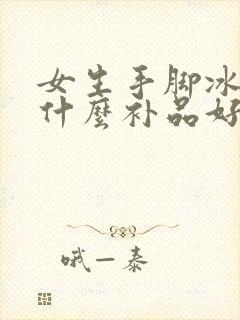 女生手脚冰
什麼补品好
哦一泰